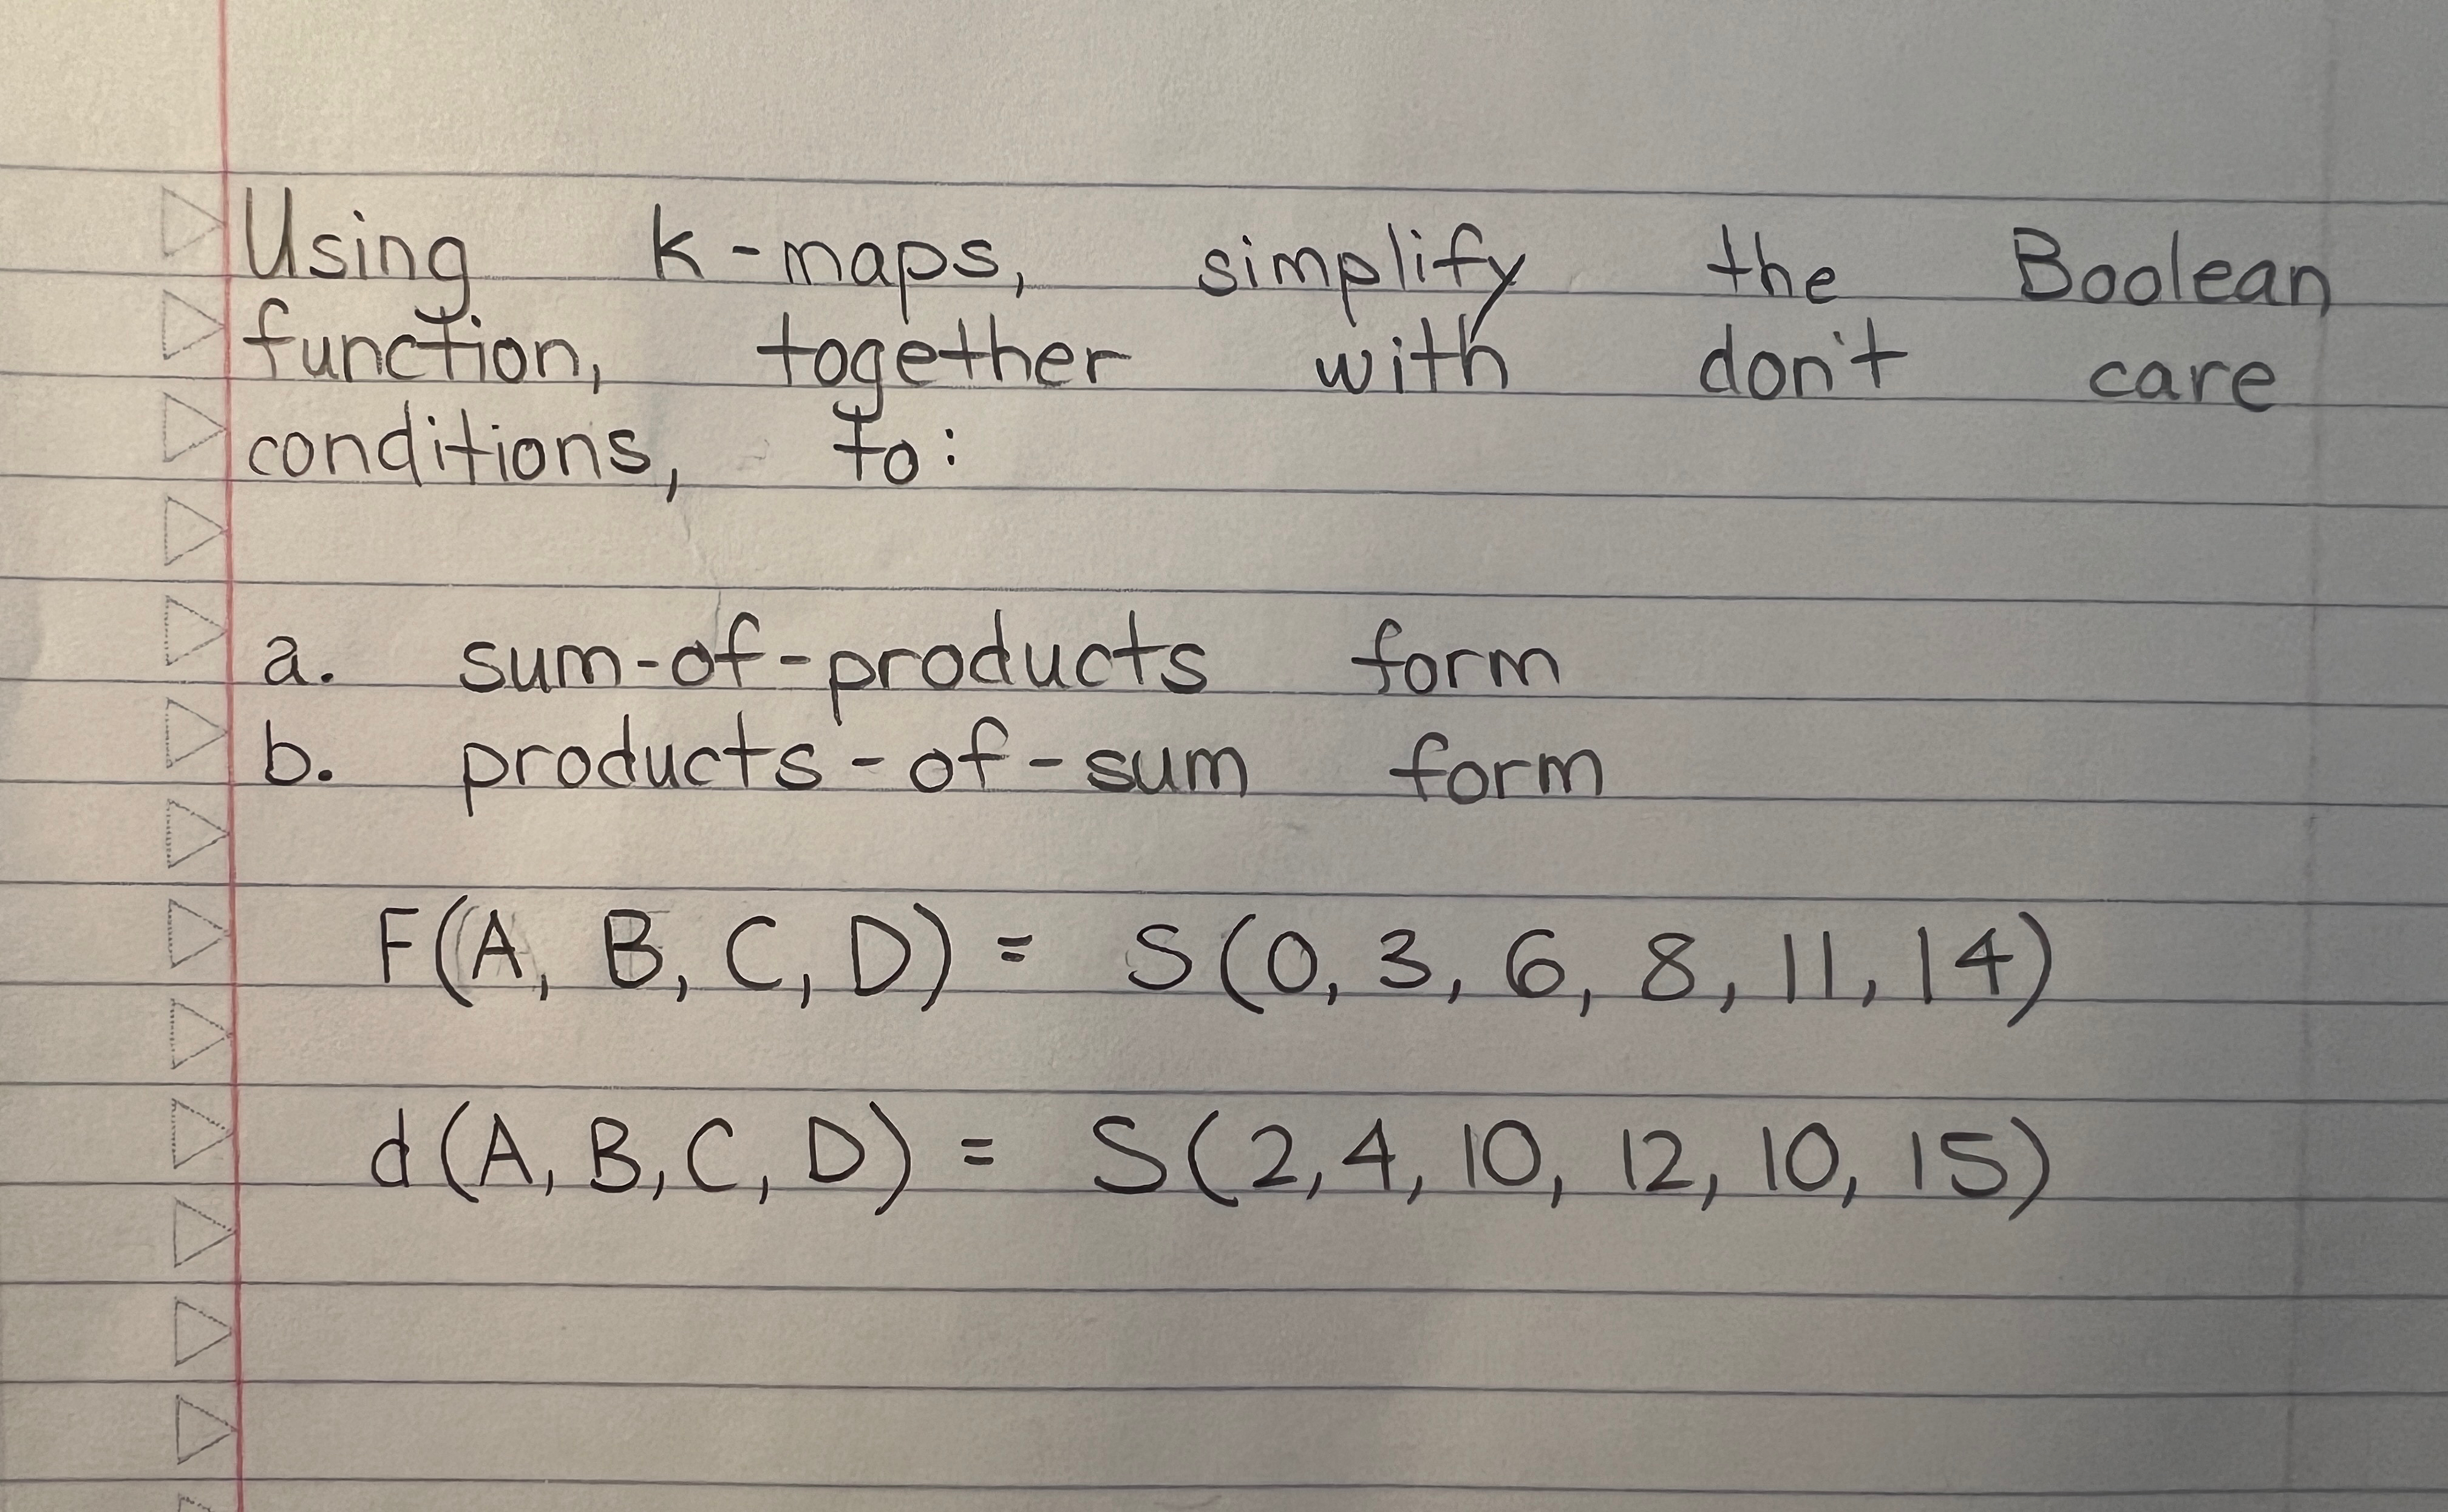 Using k-maps, simplify the Boolean
function, together with don't care
conditions, to:
a. sum-of-products form
b. products-of-sum form
F(A, B, C, D) = S(0, 3, 6, 8, 11, 14)
d(A, B, C, D) = S(2, 4, 10, 12, 10, 15)